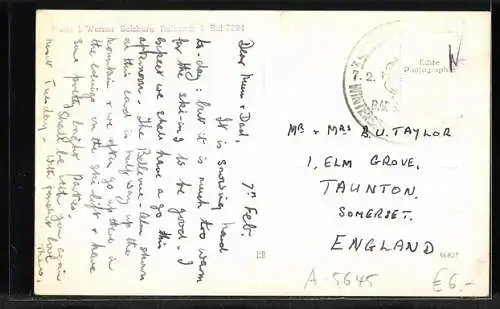 7th Feb.
Dear Mum & Dad,
It is snowing hard
to-day: but it is much too warm
for the ski-ing to be good. I
expect we shall have a go this
afternoon. The Bellevue-Alm shown
on this card is half way up the
mountain & we often go up there in
the evenings on the ski-lift & have
some pretty parties.
Shall be with you again
next Tuesday - With fondest love
Echte
Photographie
7.2.
BAD
WINTERS
MR & MRS B.U. TAYLOR
1, ELM GROVE,
TAUNTON,
SOMERSET.
ENGLAND
A-5645
€6.-